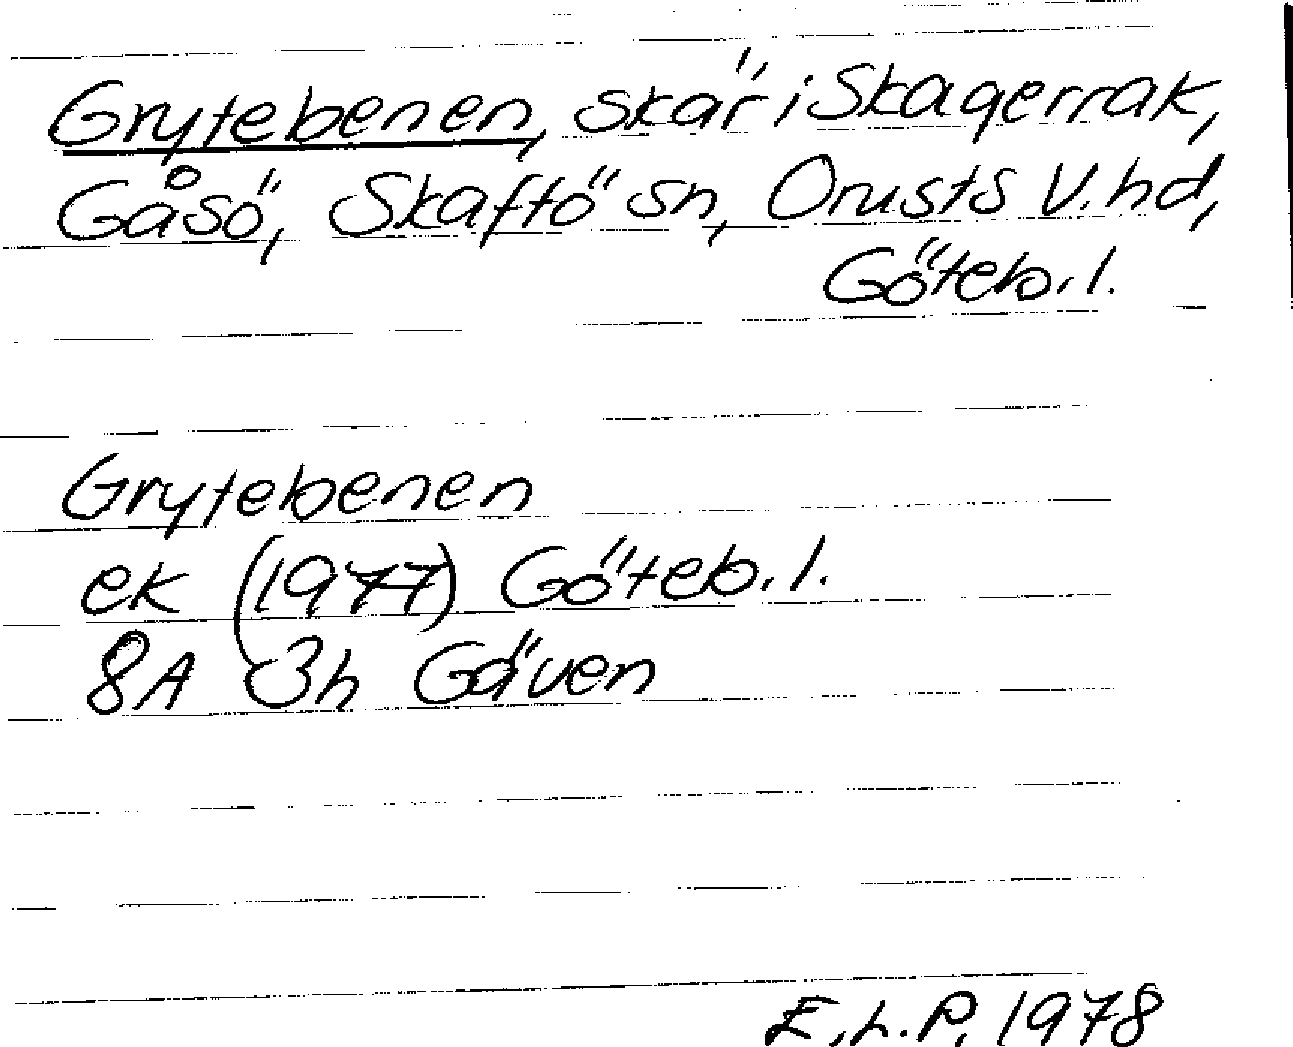 Grytebenen, skär i Skagerrak,
Gåsö, Skaftö sn, Orusts V. hd,
Göteb. l.
Grytebenen
ek (1977) Göteb. l.
8A 3h Gåven
E.L.P. 1978